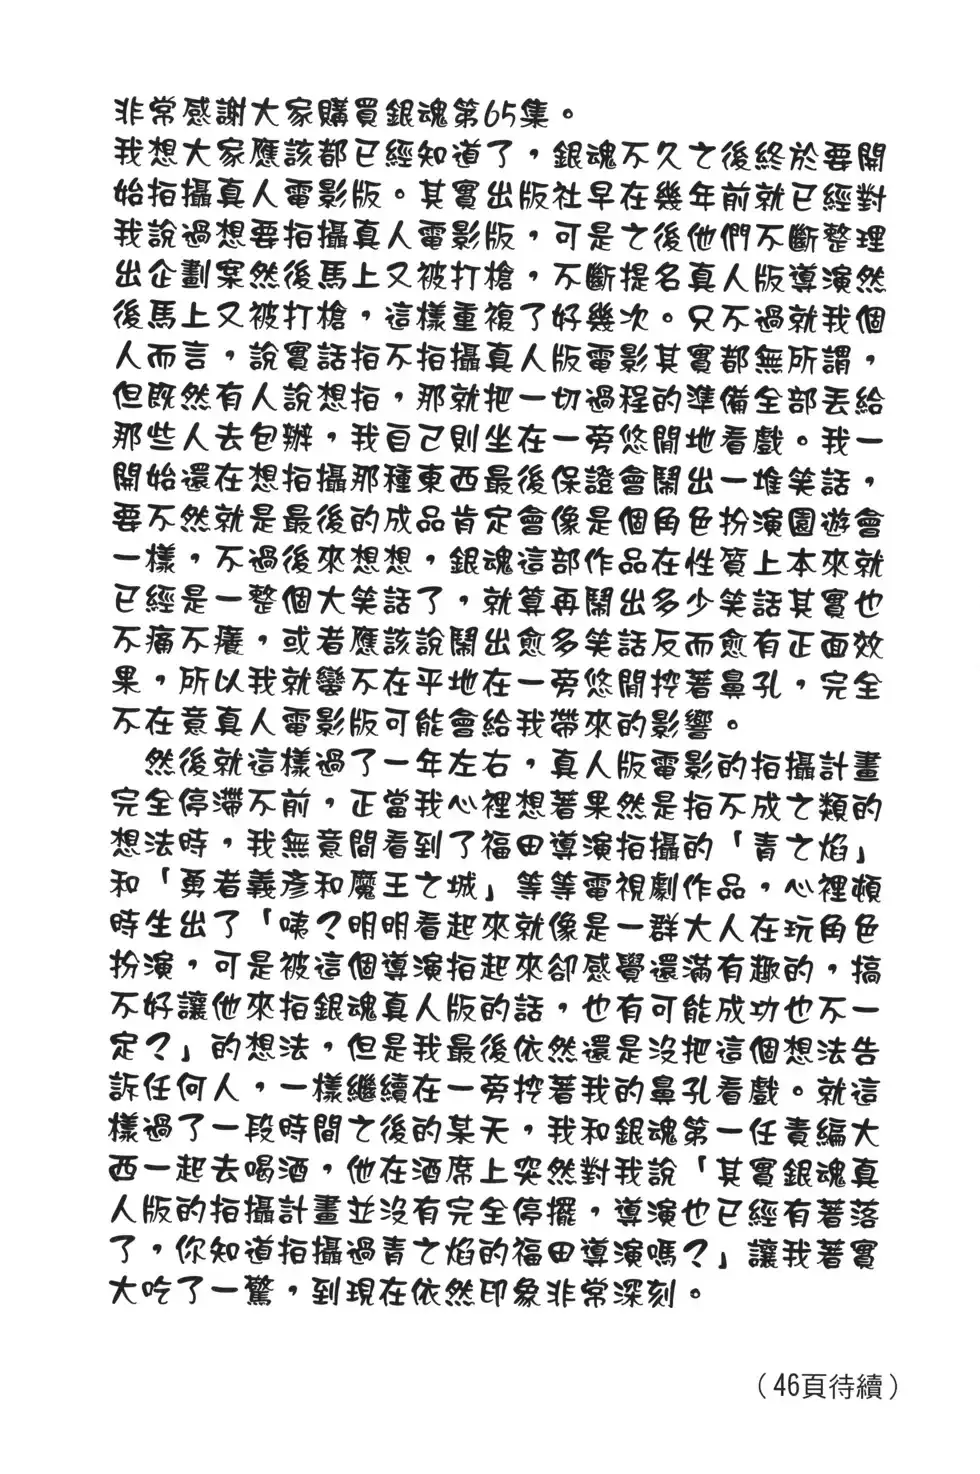 非常感謝大家購買銀魂第65集。
我想大家應該都已經知道了，銀魂不久之後終於要開
始拍攝真人電影版。其實出版社早在幾年前就已經對
我說過想要拍攝真人電影版，可是之後他們不斷整理
出企劃案然後馬上又被打槍，不斷提名真人版導演然
後馬上又被打槍，這樣重複了好幾次。只不過就我個
人而言，說實話拍不拍攝真人版電影其實都無所謂，
但既然有人說想拍，那就把一切過程的準備全部丟給
那些人去包辦，我自己則坐在一旁悠閒地看戲。我一
開始還在想拍攝那種東西最後保證會鬧出一堆笑話，
要不然就是最後的成品肯定會像是個角色扮演園遊會
一樣，不過後來想想，銀魂這部作品在性質上本來就
已經是一整個大笑話了，就算再鬧出多少笑話其實也
不痛不癢，或者應該說鬧出愈多笑話反而愈有正面效
果，所以我就蠻不在乎地在一旁悠閒挖著鼻孔，完全
不在意真人電影版可能會給我帶來的影響。
然後就這樣過了一年左右，真人版電影的拍攝計畫
完全停滯不前，正當我心裡想著果然是拍不成之類的
想法時，我無意間看到了福田導演拍攝的「青之焰」
和「勇者義彥和魔王之城」等等電視劇作品，心裡頓
時生出了「咦？明明看起來就像是一群大人在玩角色
扮演，可是被這個導演拍起來卻感覺還滿有趣的，搞
不好讓他來拍銀魂真人版的話，也有可能成功也不一
定？」的想法，但是我最後依然還是沒把這個想法告
訴任何人，一樣繼續在一旁挖著我的鼻孔看戲。就這
樣過了一段時間之後的某天，我和銀魂第一任責編大
西一起去喝酒，他在酒席上突然對我說「其實銀魂真
人版的拍攝計畫並沒有完全停擺，導演也已經有著落
了，你知道拍攝過青之焰的福田導演嗎？」讓我著實
大吃了一驚，到現在依然印象非常深刻。
（46頁待續）